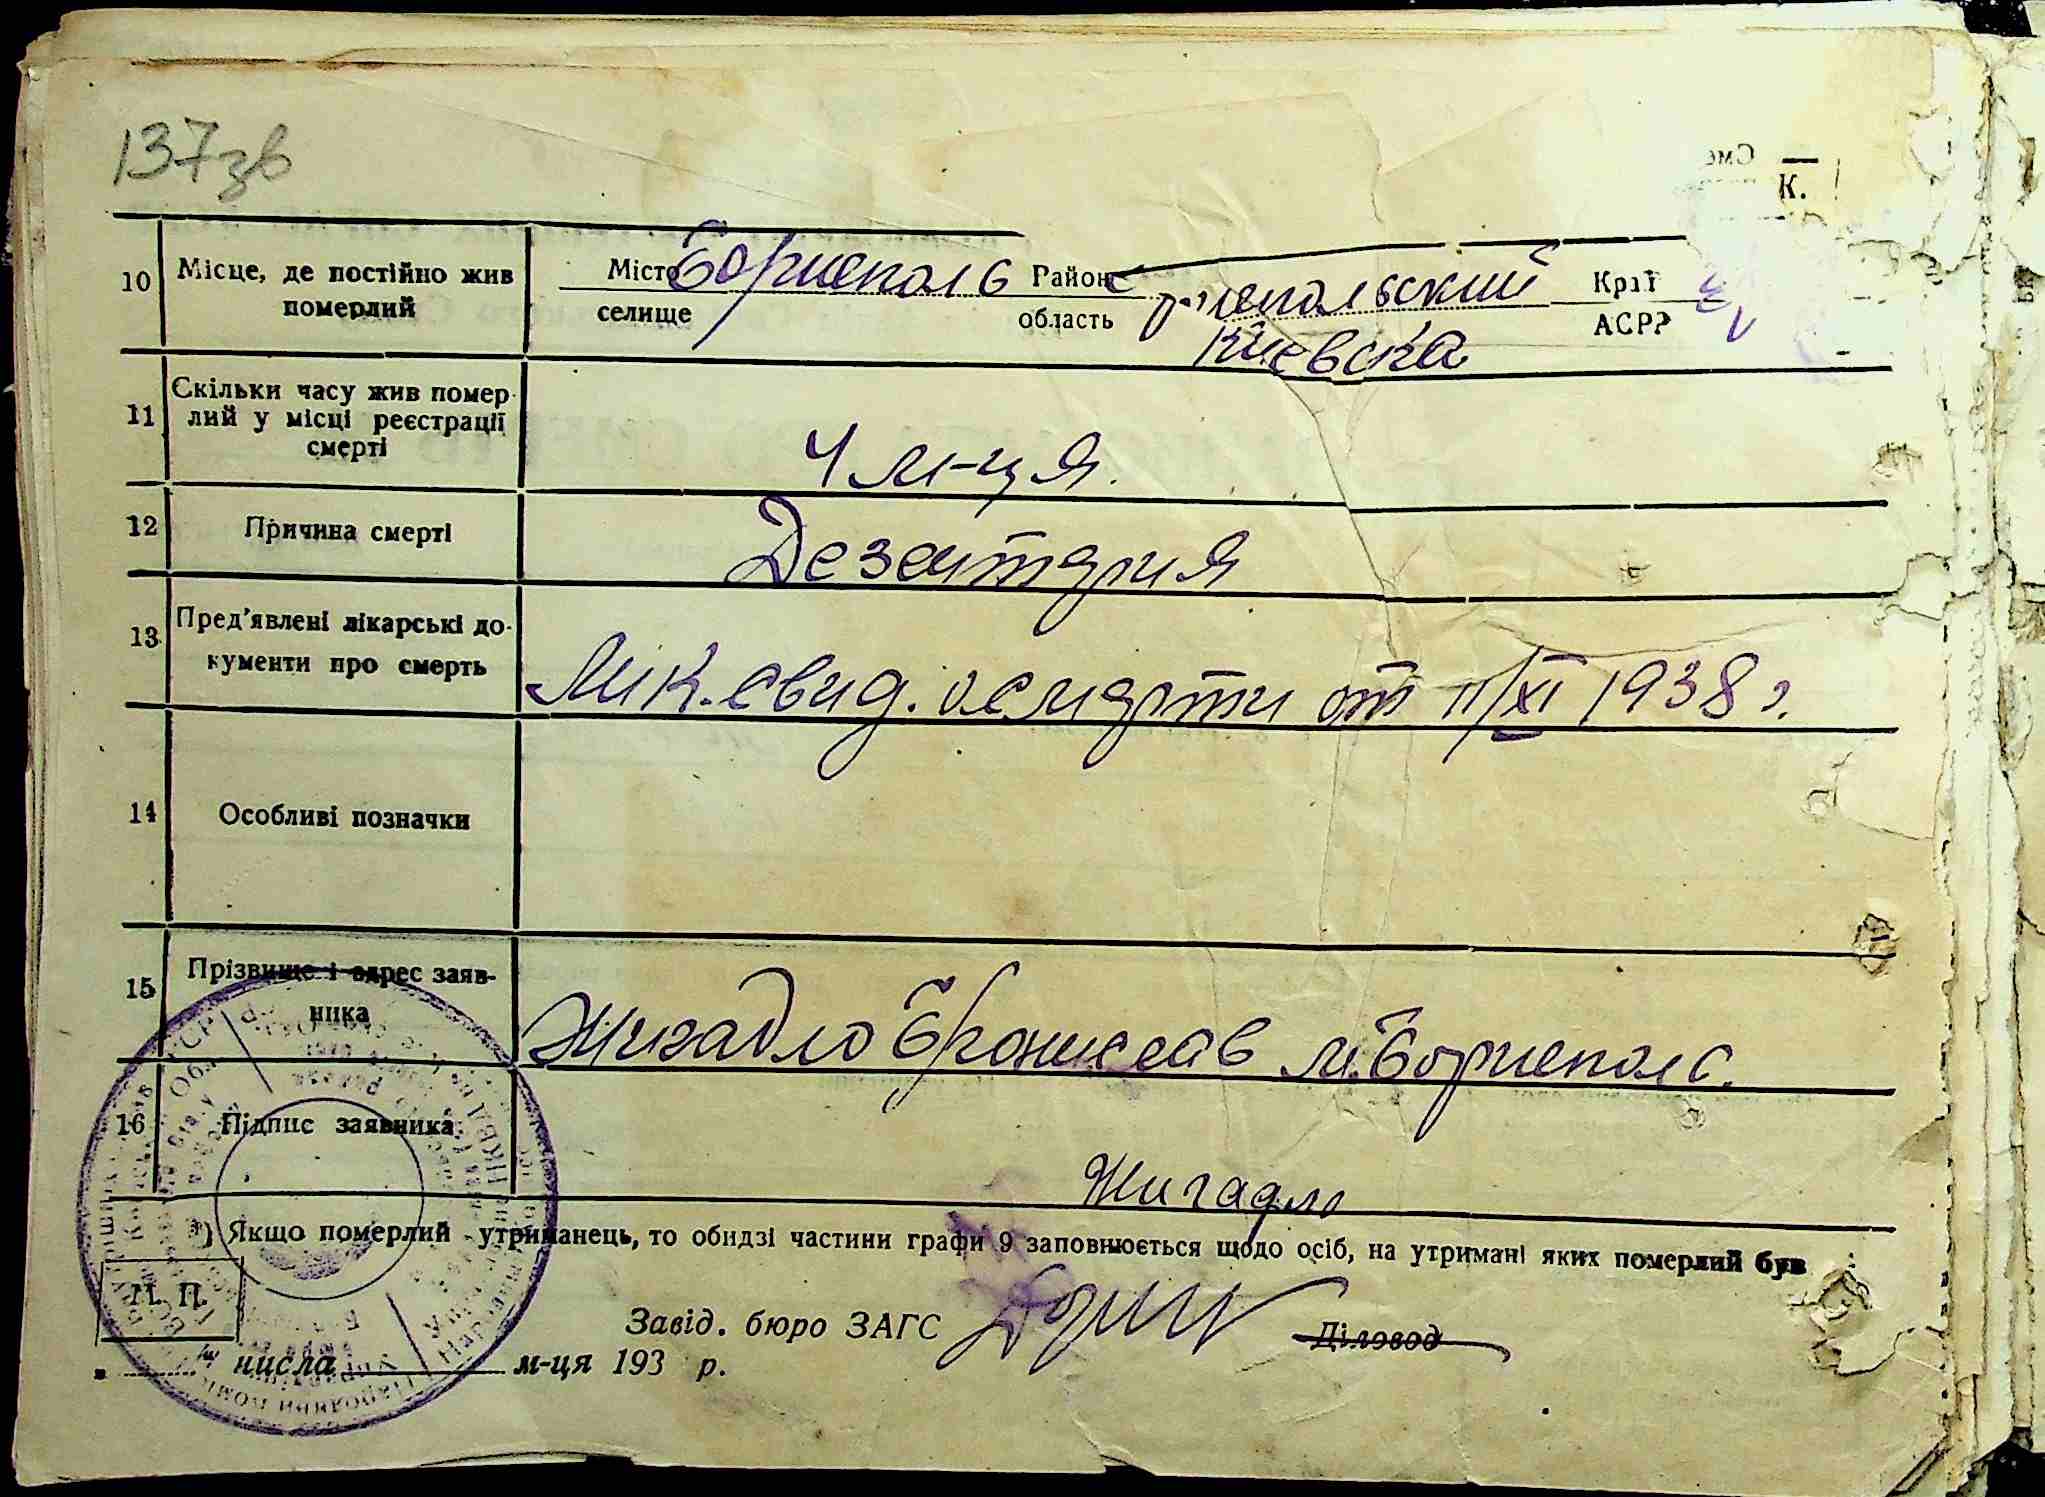 137зв
К.
10 Місце, де постійно жив померлий
Місто Бориспіль Район Бориспольский Край
селище область Киевска АСРР
11 Скільки часу жив помер-
лий у місці реєстрації
смерті
4 м-ця.
12 Причина смерті Дезентерия
13 Пред'явлені лікарські до-
кументи про смерть
Лік. свид. о смерти от 11/XI 1938 г.
14 Особливі позначки
15 Прізвище і адрес заяв-
ника
Жигадло Бронислав м. Борисполь.
16 Підпис заявника
Жигадло
*) Якщо померлий утриманець, то обидзі частини графи 9 заповнюється щодо осіб, на утримані яких померлий був
М. П.
Завід. бюро ЗАГС Діловод
" числа м-ця 193 р.